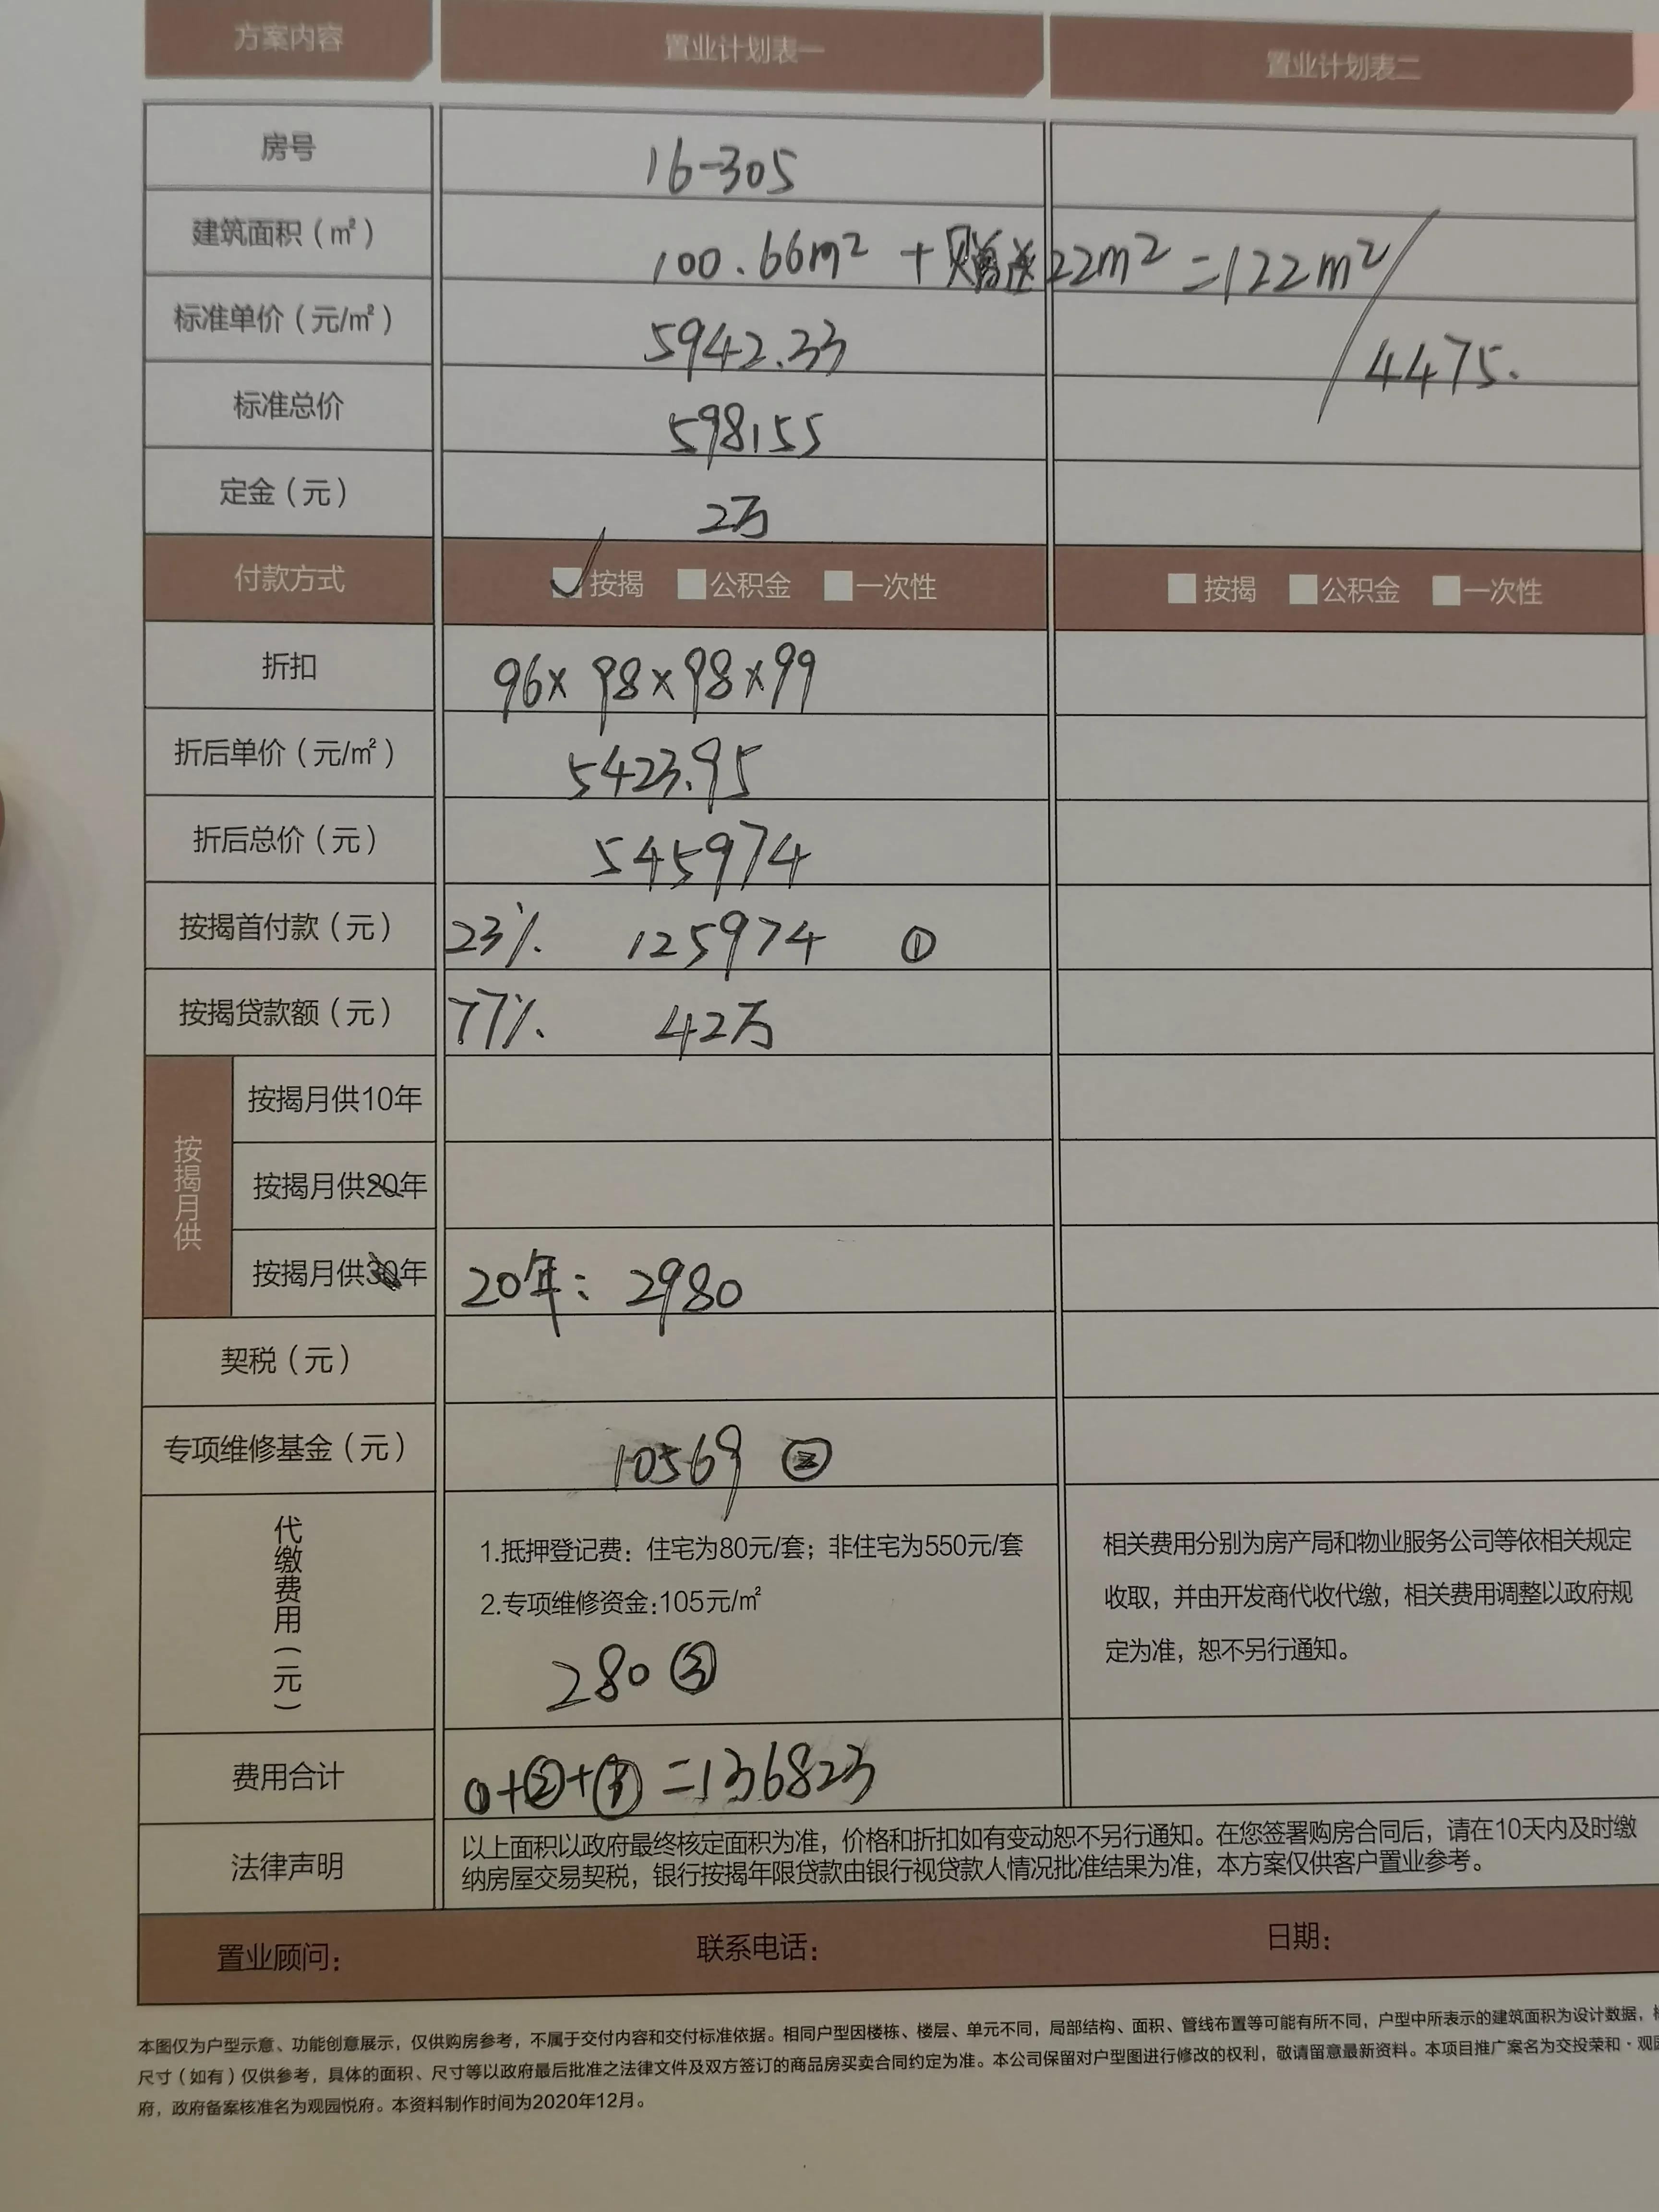 方案内容 置业计划表一 置业计划表二
房号 16-305
建筑面积（㎡） 100.66m² + 赠送22m² =122m²/
标准单价（元/㎡） 5942.33 4475.
标准总价 598155
定金（元） 2万
付款方式 按揭 公积金 一次性 按揭 公积金 一次性
折扣 96× 98×98×99
折后单价（元/㎡） 5423.95
折后总价（元） 545974
按揭首付款（元） 23% 125974 ①
按揭贷款额（元） 77% 42万
按揭月供
按揭月供10年
按揭月供20年
按揭月供30年 20年：2980
契税（元）
专项维修基金（元） 10569 ②
代缴费用（元）
1.抵押登记费：住宅为80元/套；非住宅为550元/套
2.专项维修资金:105元/㎡
280 ③
相关费用分别为房产局和物业服务公司等依相关规定
收取，并由开发商代收代缴，相关费用调整以政府规
定为准，恕不另行通知。
费用合计 ①+②+③ =136823
法律声明
以上面积以政府最终核定面积为准，价格和折扣如有变动恕不另行通知。在您签署购房合同后，请在10天内及时缴
纳房屋交易契税，银行按揭年限贷款由银行视贷款人情况批准结果为准，本方案仅供客户置业参考。
置业顾问： 联系电话： 日期：
本图仅为户型示意、功能创意展示，仅供购房参考，不属于交付内容和交付标准依据。相同户型因楼栋、楼层、单元不同，局部结构、面积、管线布置等可能有所不同，户型中所表示的建筑面积为设计数据，
尺寸（如有）仅供参考，具体的面积、尺寸等以政府最后批准之法律文件及双方签订的商品房买卖合同约定为准。本公司保留对户型图进行修改的权利，敬请留意最新资料。本项目推广案名为交投荣和·观园
府，政府备案核准名为观园悦府。本资料制作时间为2020年12月。